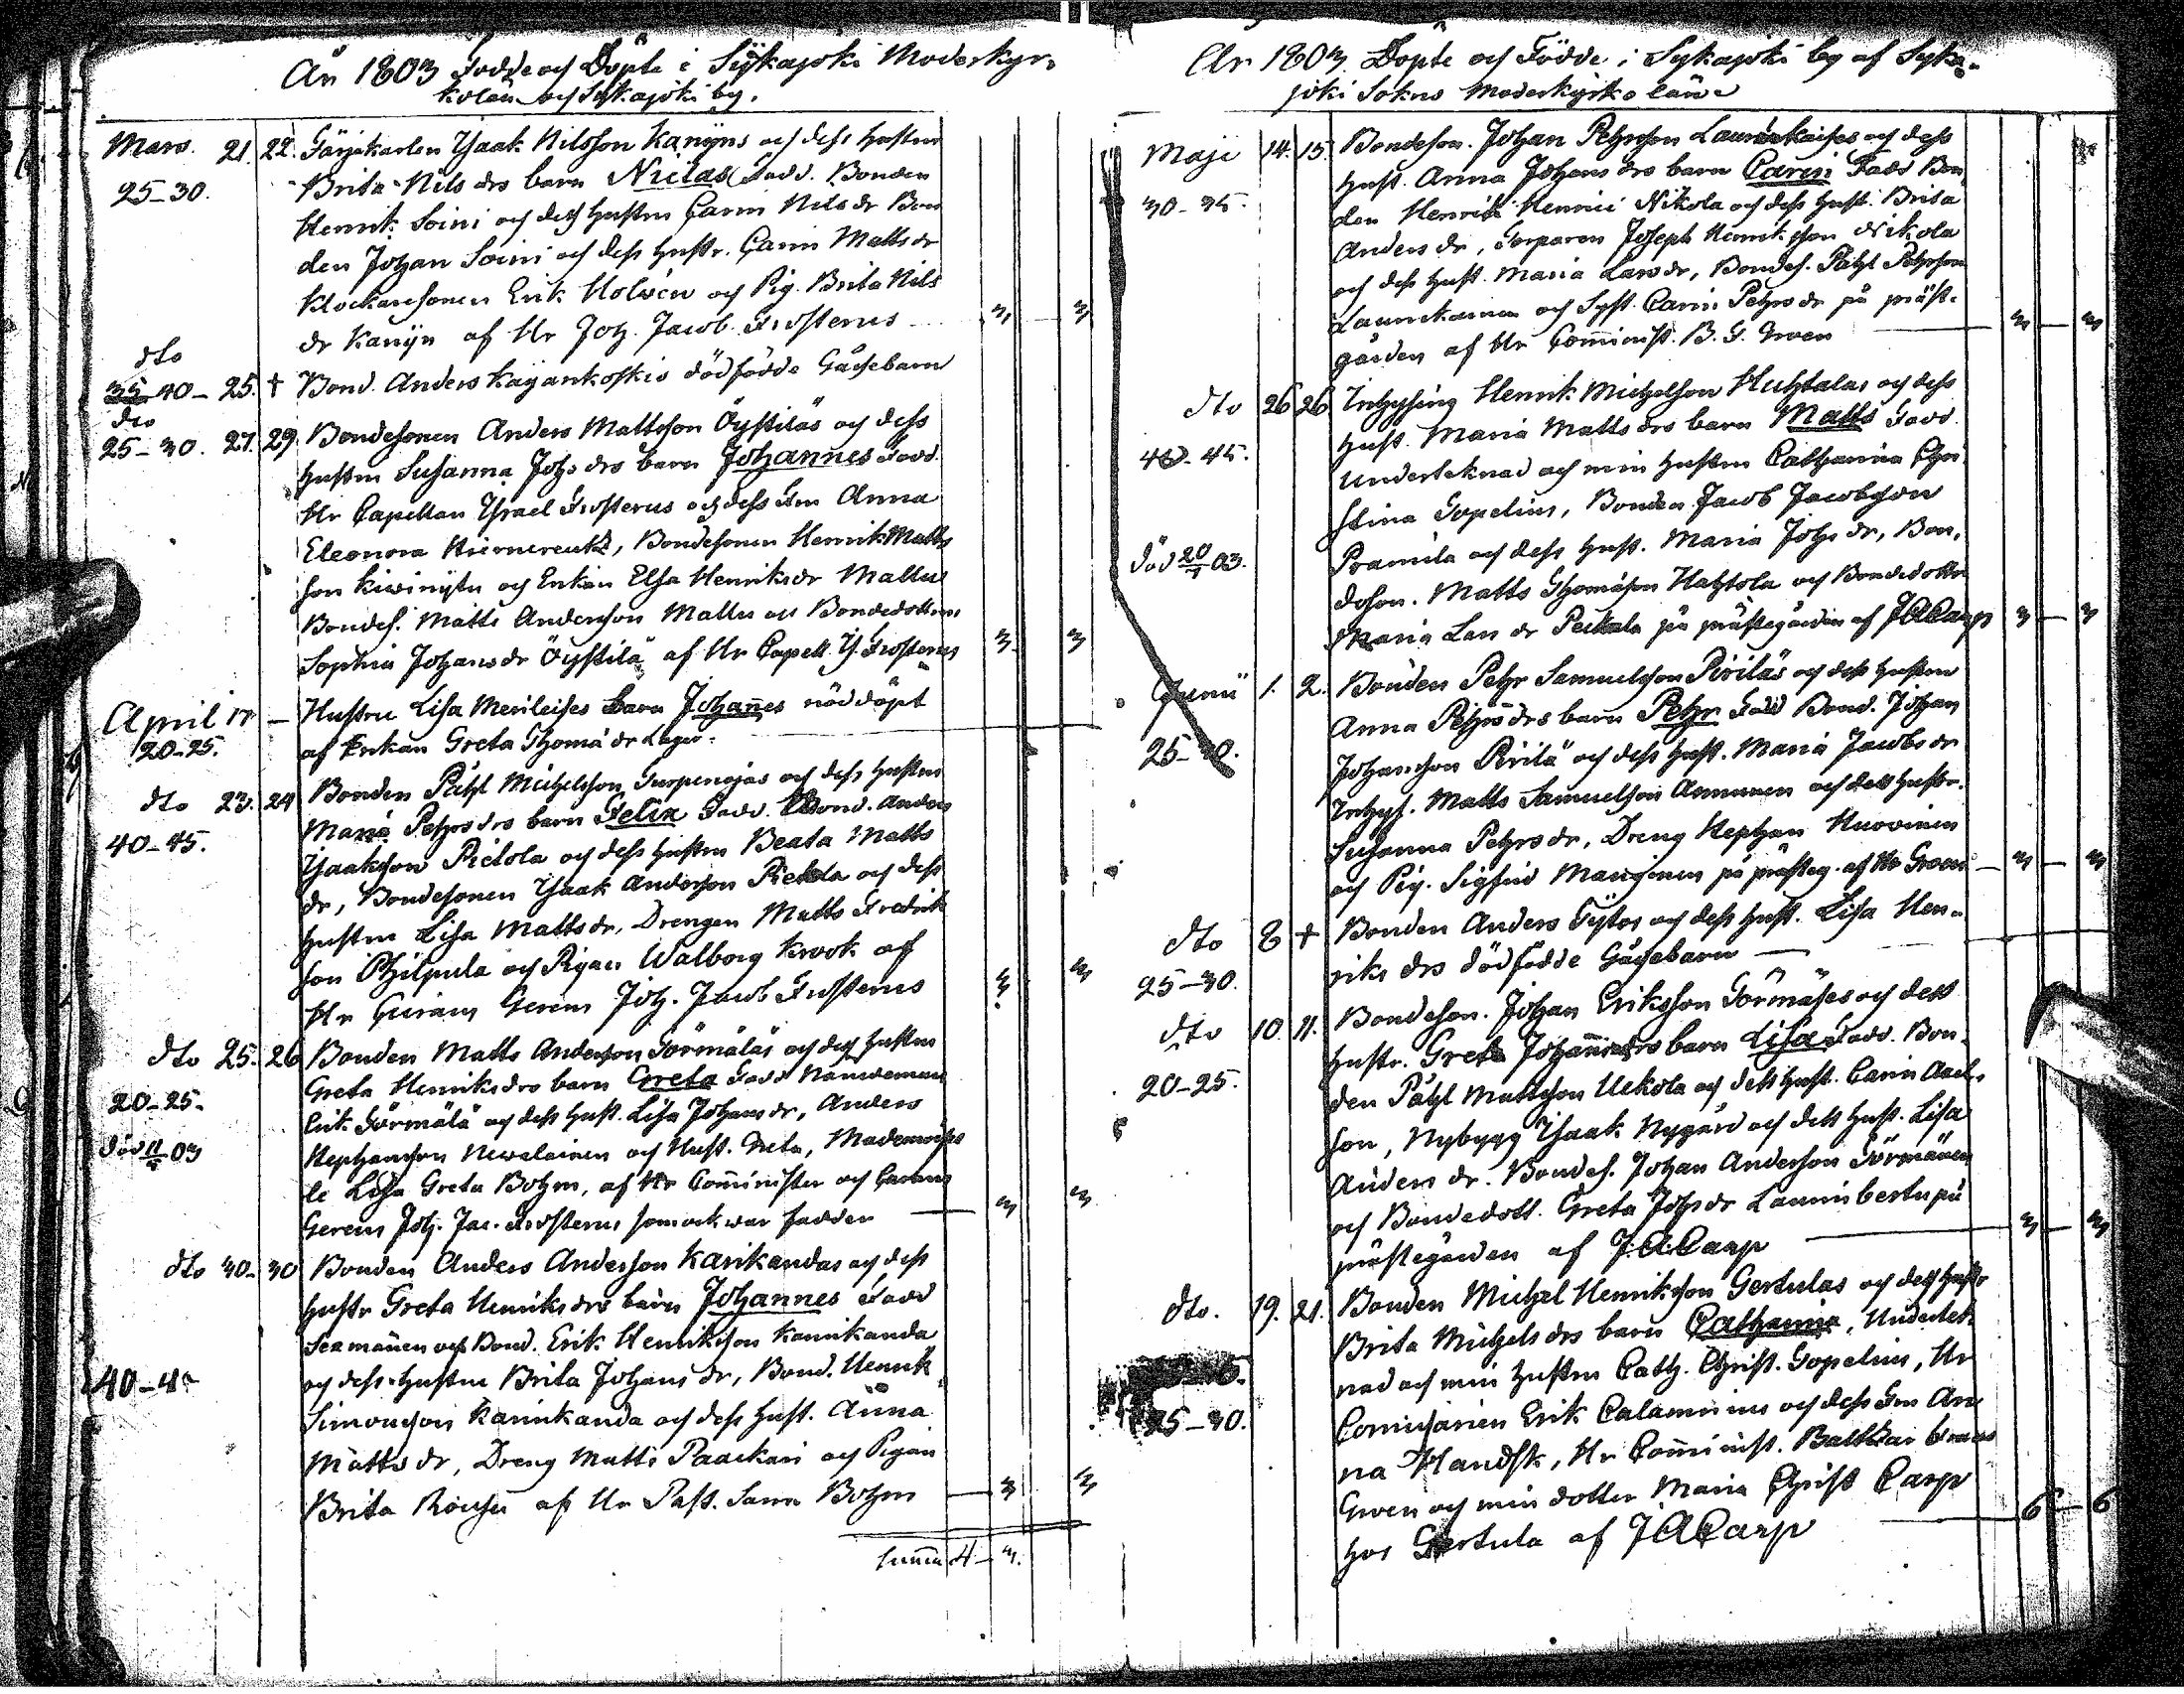 År 1803 Födde och Döpte i Sijkajoki Moderkyr-
kolän och Sijkajoki by.
Mars. 21. 22. Färjekarlen Isaak Nilsson Kanijns och dess hustru
25-30. Brita Nils drs barn Niclas Fadd. Bonden
Henrik Soini och dess hustru Carin Nils dr Bon
den Johan Soini och dess hustr. Carin Matts dr
Klockaresonen Erik Holmén och Pig. Brita Nils
dr Kanijn af Hr Joh. Jacob Frosterus 3 3
dto
35 40 - 25. † Bond. Anders Kajankoskis dödfödde Gåssebarn
dto
25-30. 27. 29. Bondesonen Anders Mattsson Öystiläs och dess
hustru Susanna Johs drs barn Johannes Fadd.
Hr Capellan Israel Frosterus och dess Fru Anna
Eleonora, Bondesonen Henrik Matts
son Kiwinijtu och Enkan Elsa Henriks dr Mallus
Bondes. Matts Andersson Mallus och Bondedottren
Sophia Johans dr Öystilä af Hr Capell. Is. Frosterus 3 3
April 17 - Hustru Lisa Merileises barn Johannes nöddöpt
20-25. af Enkan Greta Thomæ dr Lager.
dto 23. 24 Bonden Påhl Michelsson Turpenojas och dess hustru
40-45. Maria Pehrs drs barn Felix Fadd. Bond. Anders
Isaaksson Pietola och dess hustru Beata Matts
dr, Bondesonen Isaak Andersson Pietola och dess
hustru Lisa Matts dr, Drengen Matts Fredrik
son Philpula och Pigan Walborg Krook af
Hr Curam Gerens Joh. Jacob Frosterus 3 3
dto 25. 26 Bonden Matts Andersson Törmäläs och dess hustru
20-25. Greta Henriks drs barn Greta Fadd. Nämdeman
Erik Törmälä och dess hust. Lisa Johans dr, Anders
död 11/5 03 Stephansson Newalainen och Hust. Greta, Mademoisel
le Lisa Greta Bohm, af Hr Comminister och Curam
Gerens Joh. Jac. Frosterus som ock war fadder 3 3
dto 30. 30 Bonden Anders Andersson Karikandas och dess
hustr Greta Henriks drs barn Johannes Fadd
Sexmannen och Bond. Erik Henriksson Karinkanda
40-4 och dess hustru Brita Johans dr, Bond. Henrik
Simonsson Karinkanda och dess hust. Anna
Matts dr, Dreng Matts Paackari och Pigan
Brita af Hr Past. Sam. Bohm 3 3
summa 4 - 3.
År 1803. Döpte och Födde i Sijkajoki by af Sijka-
joki Sokns Moderkyrkolän
Maji 14. 15. Bondeson. Johan Pehrsson Laurinkaises och dess
30-35. hust. Anna Johans drs barn Carin Fadd Bon
den Henrik Henrici Nikola och dess hust. Brita
Anders dr, Torparen Joseph Henriksson Nikola
och dess hust. Maria Lars dr, Bondes. Påhl Pehrsson
Laurickainen och Syst. Carin Pehrs dr på präst-
gården af Hr Comminist. B. G. Groen 3 3
dto 26 26 Inhysing Henrik Michelsson Huhtalas och dess
40-45. hust. Maria Matts drs barn Matts Fadd.
Undertecknad och min hustru Catharina Chri
stina Topelius, Bonden Jacob Jacobsson
död 20/7 03. Pramila och dess hust. Maria Johs dr, Bon-
deson. Matts Thomasson Hahtola och Bondedottr
Maria Lars dr Peckala på prästegården af J A Carp 3 3
Junii 1. 2. Bonden Pehr Samuelsson Piriläs och dess hustru
25-30. Anna Pehrs drs barn Pehr Fadd Bond. Johan
Johansson Pirilä och dess hust. Maria Jacobs dr
Inhys. Matts Samuelsson Annunen och dess hustr.
Susanna Pehrs dr, Dreng Stephan Huovinen
och Pig. Sigfrid Manginen på prästeg. af Hr Groen 3 3
dto 8 † Bonden Anders Työtas och dess hust. Lisa Hen-
25-30. riks drs dödfödde Gåssebarn
dto 10. 11. Bondeson. Johan Eriksson Törmäses och dess
20-25. hustr. Greta drs barn Lisa Fadd. Bon-
den Påhl Mattsson Uckola och dess hust. Carin
son, Nybygg Isaak Nygård och dess hust. Lisa
Anders dr. Bondes. Johan Andersson Törmänen
och Bondedott. Greta Johs dr på
prästegården af J. A. Carp 3 3
dto. 19. 21. Bonden Michel Henriksson Gertulas och dess hustr
Brita Michels drs barn Catharina, Underteck
nad och min hustru Cath. Christ. Topelius, Hr
25-30. Commissarien Erik Calamnius och dess Fru An
na, Hr Comminist. Balthzar
Groen och min dotter Maria Christ Carp
hos Gertula af J A Carp 6 6